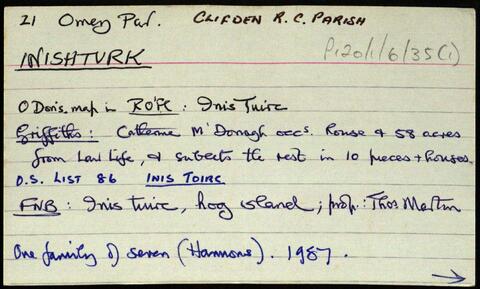 21 Omey Par. CLIFDEN R.C. PARISH
P120/1/6/35(1)
INISHTURK
O Don's map in RO'FC: Inis Tuirc
Griffiths: Catherine McDonagh occs. house & 58 acres
from Law Life, & sublets the rest in 10 pieces + houses
O.S. LIST 86 INIS TOIRC
FNB: Inis tuirc, hog island; prop: Thos Martin
One family of seven (Hannons). 1987.